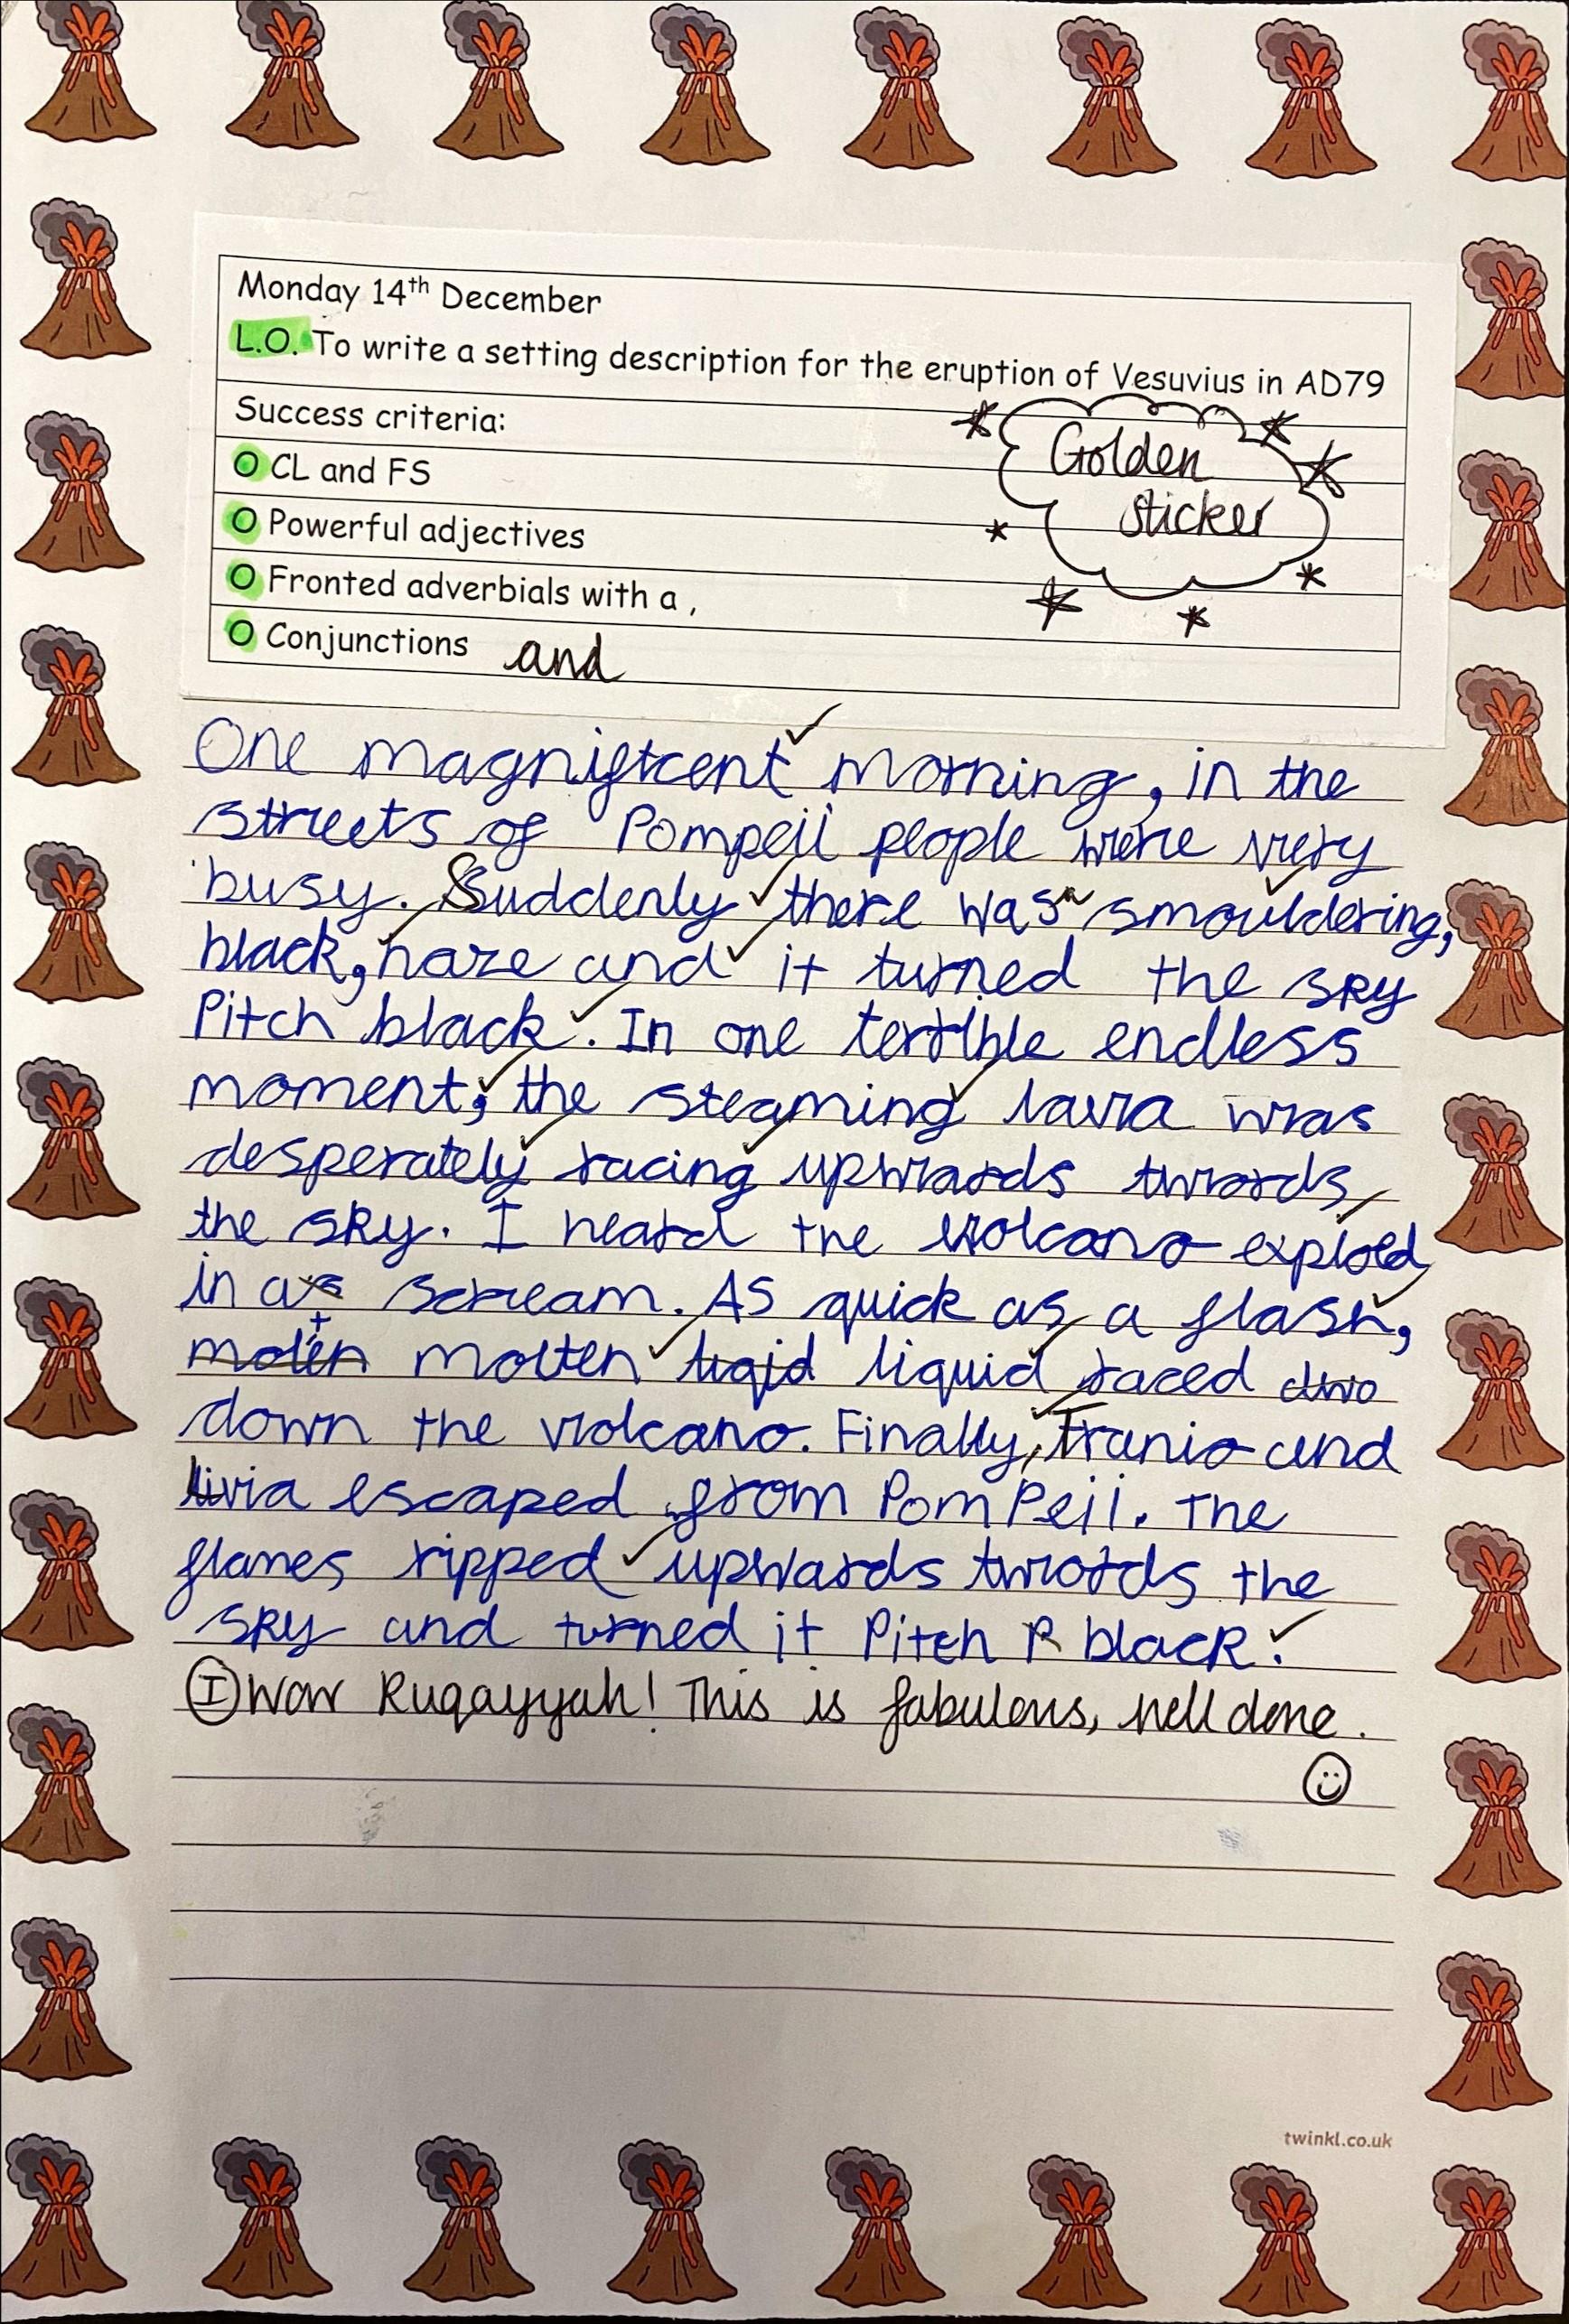 Monday 14th December
L.O. To write a setting description for the eruption of Vesuvius in AD79
Success criteria:
O CL and FS
O Powerful adjectives
O Fronted adverbials with a ,
O Conjunctions and
Golden
sticker
One magnificent morning, in the
streets of Pompeii people were very
busy. Suddenly there was a smouldering,
black, haze and it turned the sky
Pitch black. In one terrible endless
moment, the steaming lava was
desperately racing upwards twords
the sky. I heard the volcano exploed
in a scream. As quick as a flash,
molten molten liqid liquid raced dwo
down the volcano. Finally, Tranio and
livia escaped from PomPeii. The
flames ripped upwards twords the
sky and turned it Pitch P black.
I Wow Ruqayyah! This is fabulous, well done.
twinkl.co.uk